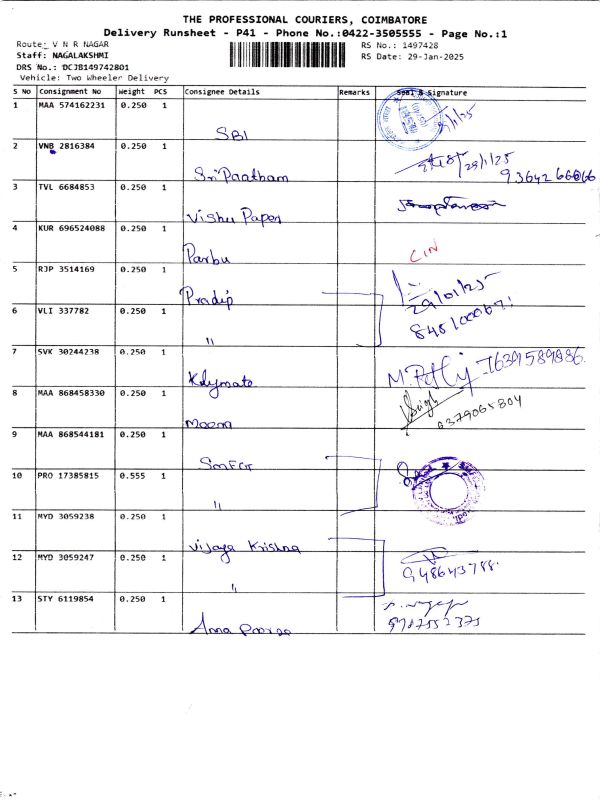 THE PROFESSIONAL COURIERS, COIMBATORE
Delivery Runsheet - P41 - Phone No.:0422-3505555 - Page No.:1
Route: V N R NAGAR RS No.: 1497428
Staff: NAGALAKSHMI RS Date: 29-Jan-2025
DRS No.: DCJB149742801
Vehicle: Two Wheeler Delivery
S No Consignment No Weight PCS Consignee Details Remarks Seal & Signature
1 MAA 574162231 0.250 1
SBI
2 VNB 2816384 0.250 1
29/1/25
Sri Paatham 9364266666
3 TVL 6684853 0.250 1
Vishu Paper
4 KUR 696524088 0.250 1
Parbu CIN
5 RJP 3514169 0.250 1
Pradip 29/01/25
6 VLI 337782 0.250 1
"
7 SVK 30244238 0.250 1
7639589886.
8 MAA 868458330 0.250 1
Meena 6379065804
9 MAA 868544181 0.250 1
10 PRO 17385815 0.555 1
"
11 MYD 3059238 0.250 1
Vijaya Krishna
12 MYD 3059247 0.250 1
" 948643788.
13 STY 6119854 0.250 1
Anna